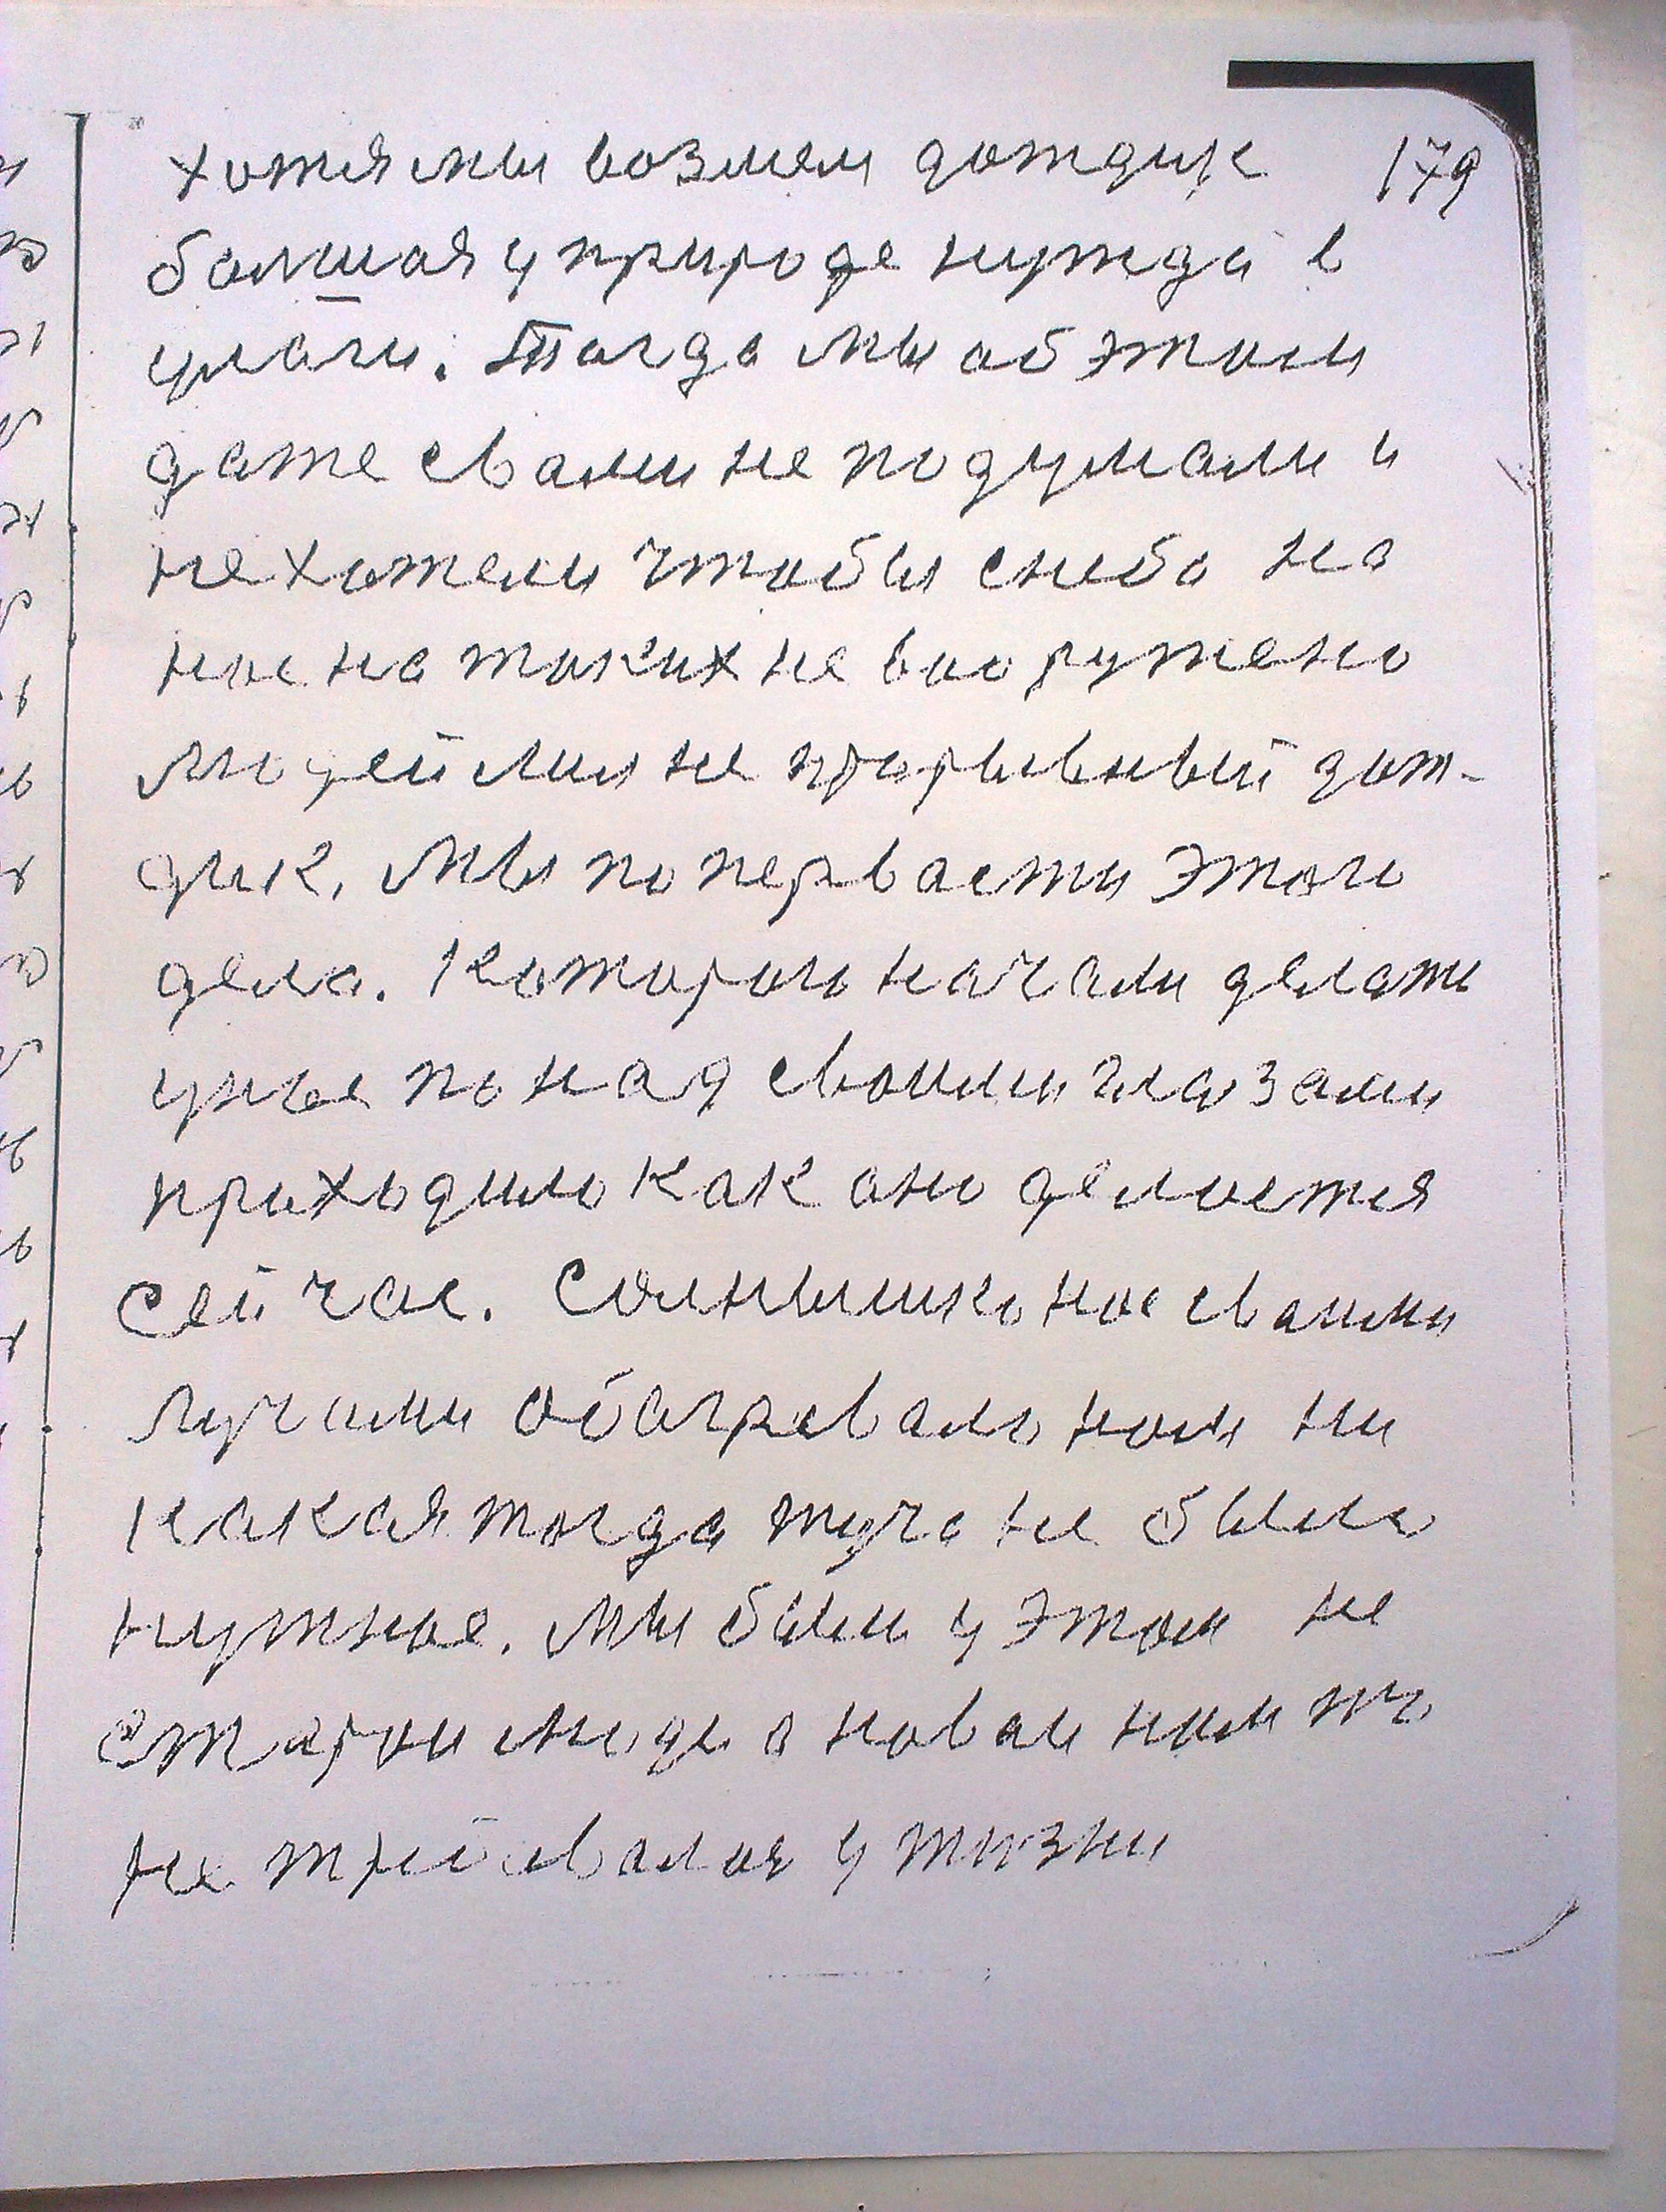 хотя мы возмем дотдик 179
балшая у природе нутда в
улаги. Тагда мы об этом
дате свами не подумали и
не хотели чтобы снеба на
нас на таких не вооружено
людей лил не прорывный дот-
дик. Мы по первасти этого
дела. Которои начали делати
уисе по над своими глазами
приходило как оно делается
сейчас. Солнышко нас своими
лучами обагревало нам ни
какая тогда туча не была
нутная. Мы были у этом не
старои люди а новаи нам то
не требавалоя у тизни